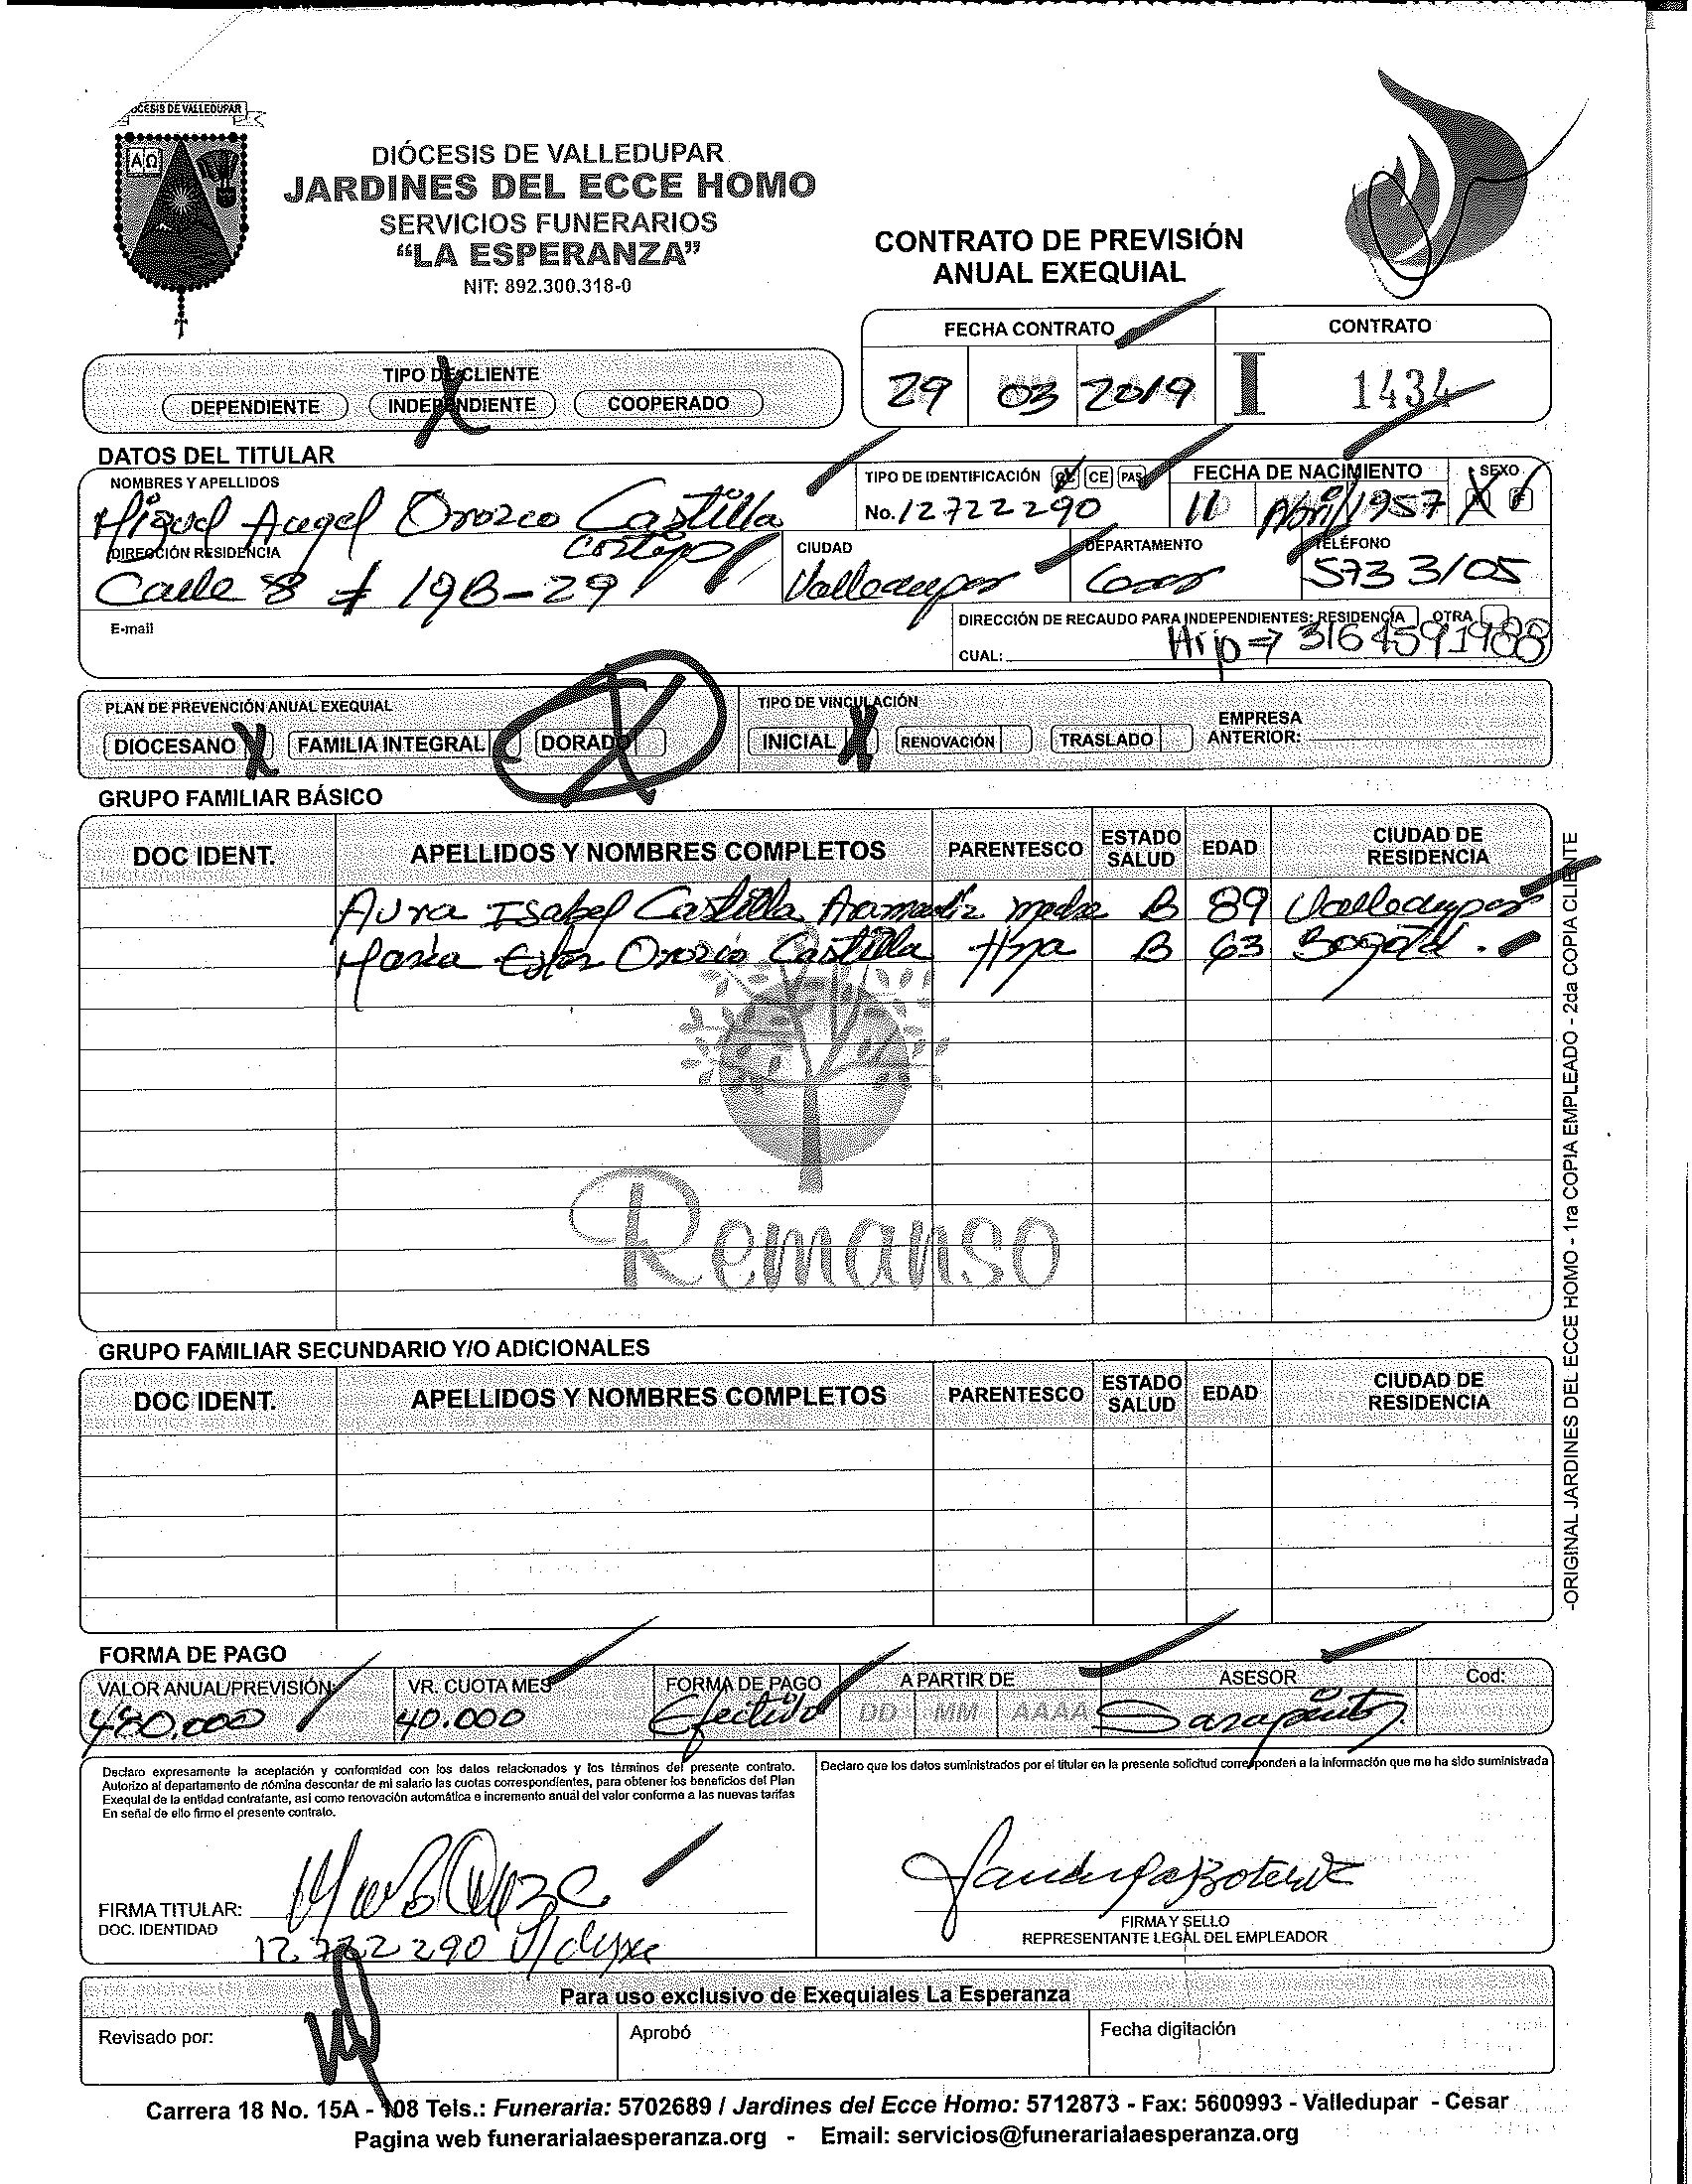 DIÓCESIS DE VALLEDUPAR
ΑΩ
DIÓCESIS DE VALLEDUPAR
JARDINES DEL ECCE HOMO
SERVICIOS FUNERARIOS
“LA ESPERANZA”
NIT: 892.300.318-0
CONTRATO DE PREVISIÓN
ANUAL EXEQUIAL
FECHA CONTRATO CONTRATO
29 03 2019 I 1434
TIPO DE CLIENTE
DEPENDIENTE INDEPENDIENTE X COOPERADO
DATOS DEL TITULAR
NOMBRES Y APELLIDOS TIPO DE IDENTIFICACIÓN CC CE PAS FECHA DE NACIMIENTO SEXO
Miguel Angel Orozco Castilla No. 12722290 11 Abril 1957 X F
DIRECCIÓN RESIDENCIA CIUDAD DEPARTAMENTO TELÉFONO
Calle 8 # 19B-29 Valledupar Cesar 573 3105
E-mail DIRECCIÓN DE RECAUDO PARA INDEPENDIENTES: RESIDENCIA OTRA
CUAL: Hijo => 3164591988
PLAN DE PREVENCIÓN ANUAL EXEQUIAL TIPO DE VINCULACIÓN
DIOCESANO X FAMILIA INTEGRAL DORADO X INICIAL X RENOVACIÓN TRASLADO EMPRESA ANTERIOR:
GRUPO FAMILIAR BÁSICO
DOC IDENT. APELLIDOS Y NOMBRES COMPLETOS PARENTESCO ESTADO SALUD EDAD CIUDAD DE RESIDENCIA
Aura Isabel Castilla madre B 89 Valledupar
Maria Ester Orozco Castilla Hna B 63 Bogotá.
Remanso
GRUPO FAMILIAR SECUNDARIO Y/O ADICIONALES
DOC IDENT. APELLIDOS Y NOMBRES COMPLETOS PARENTESCO ESTADO SALUD EDAD CIUDAD DE RESIDENCIA
-ORIGINAL JARDINES DEL ECCE HOMO - 1ra COPIA EMPLEADO - 2da COPIA CLIENTE
FORMA DE PAGO
VALOR ANUAL/PREVISIÓN VR. CUOTA MES FORMA DE PAGO A PARTIR DE ASESOR Cod:
480.000 40.000 Efectivo DD MM AAAA
Declaro expresamente la aceptación y conformidad con los datos relacionados y los términos del presente contrato.
Autorizo al departamento de nómina descontar de mi salario las cuotas correspondientes, para obtener los beneficios del Plan
Exequial de la entidad contratante, así como renovación automática e incremento anual del valor conforme a las nuevas tarifas
En señal de ello firmo el presente contrato.
Declaro que los datos suministrados por el titular en la presente solicitud corresponden a la información que me ha sido suministrada
FIRMA TITULAR:
DOC. IDENTIDAD
12.722290 V/dupar
FIRMA Y SELLO
REPRESENTANTE LEGAL DEL EMPLEADOR
Para uso exclusivo de Exequiales La Esperanza
Revisado por: Aprobó Fecha digitación
Carrera 18 No. 15A - 108 Tels.: Funeraria: 5702689 / Jardines del Ecce Homo: 5712873 - Fax: 5600993 - Valledupar - Cesar
Pagina web funerarialaesperanza.org - Email: servicios@funerarialaesperanza.org